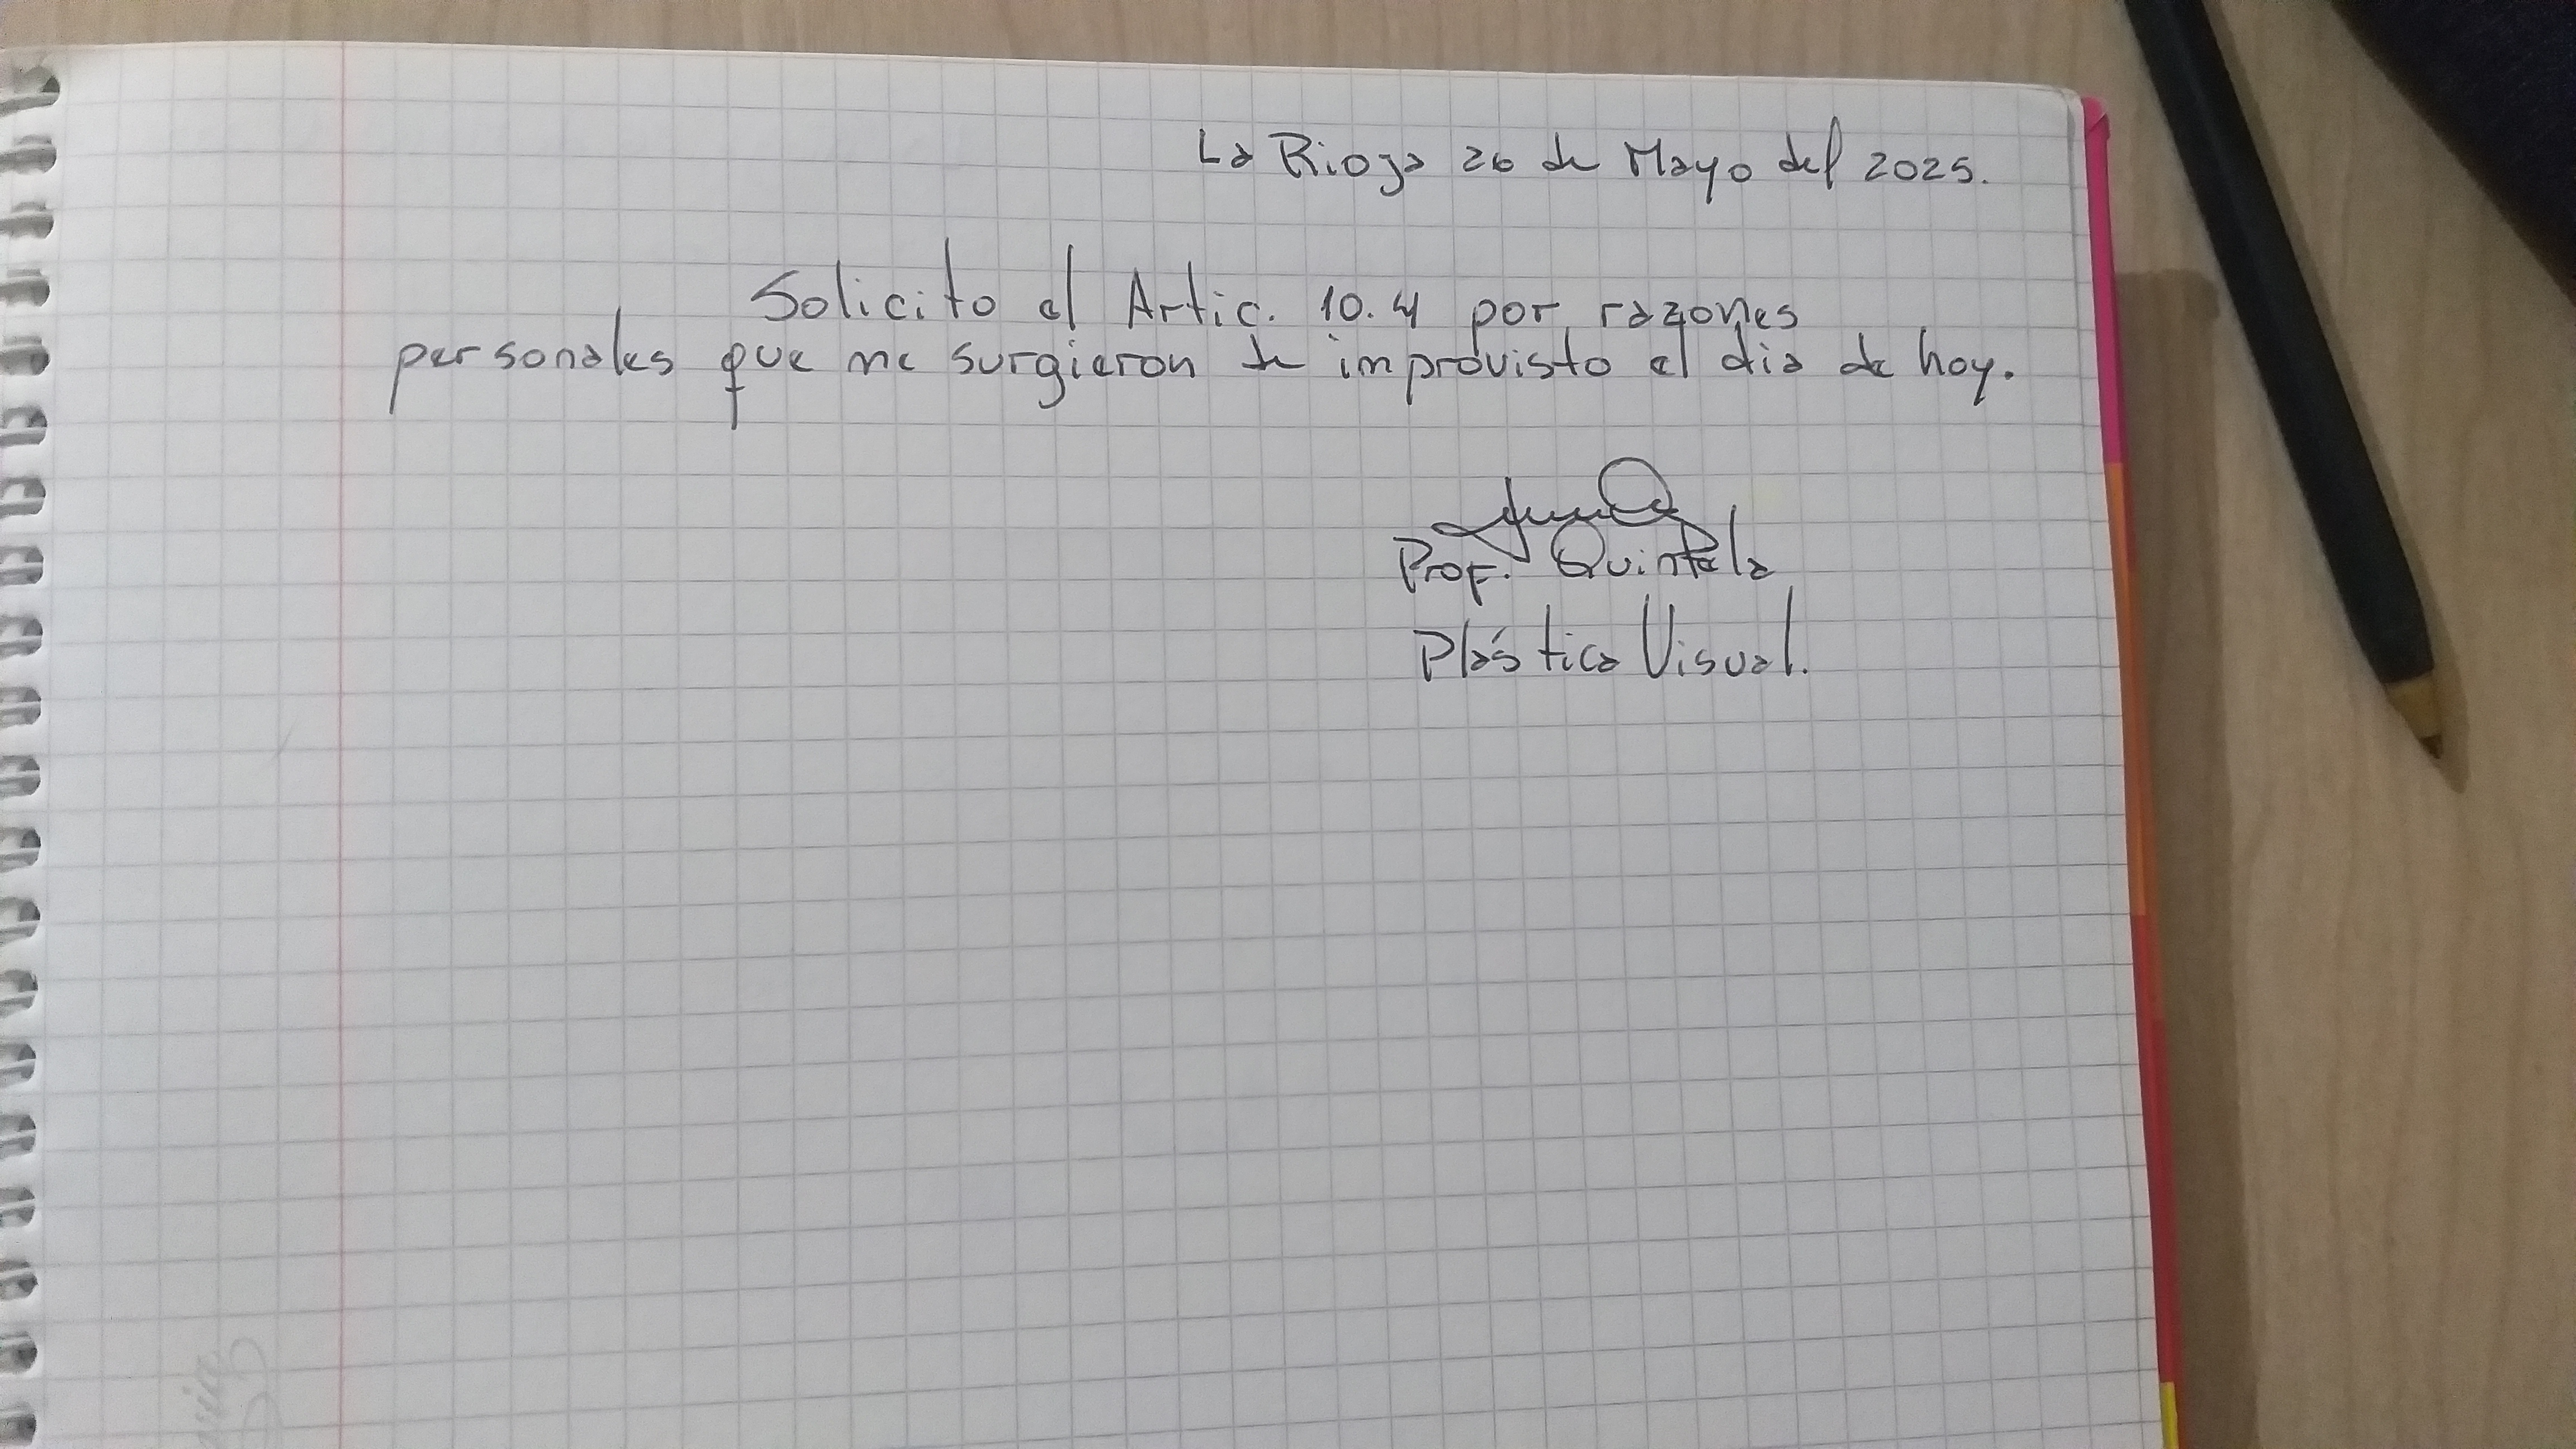 La Rioja 26 de Mayo del 2025.
Solicito el Artic. 10.4 por razones
personales que me surgieron de improvisto el dia de hoy.
Prof. Quintela
Plástica Visual.